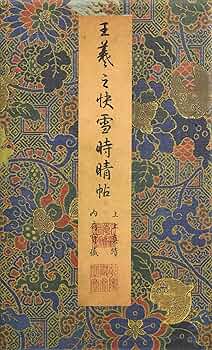 王羲之快雪時晴帖
上等
內府